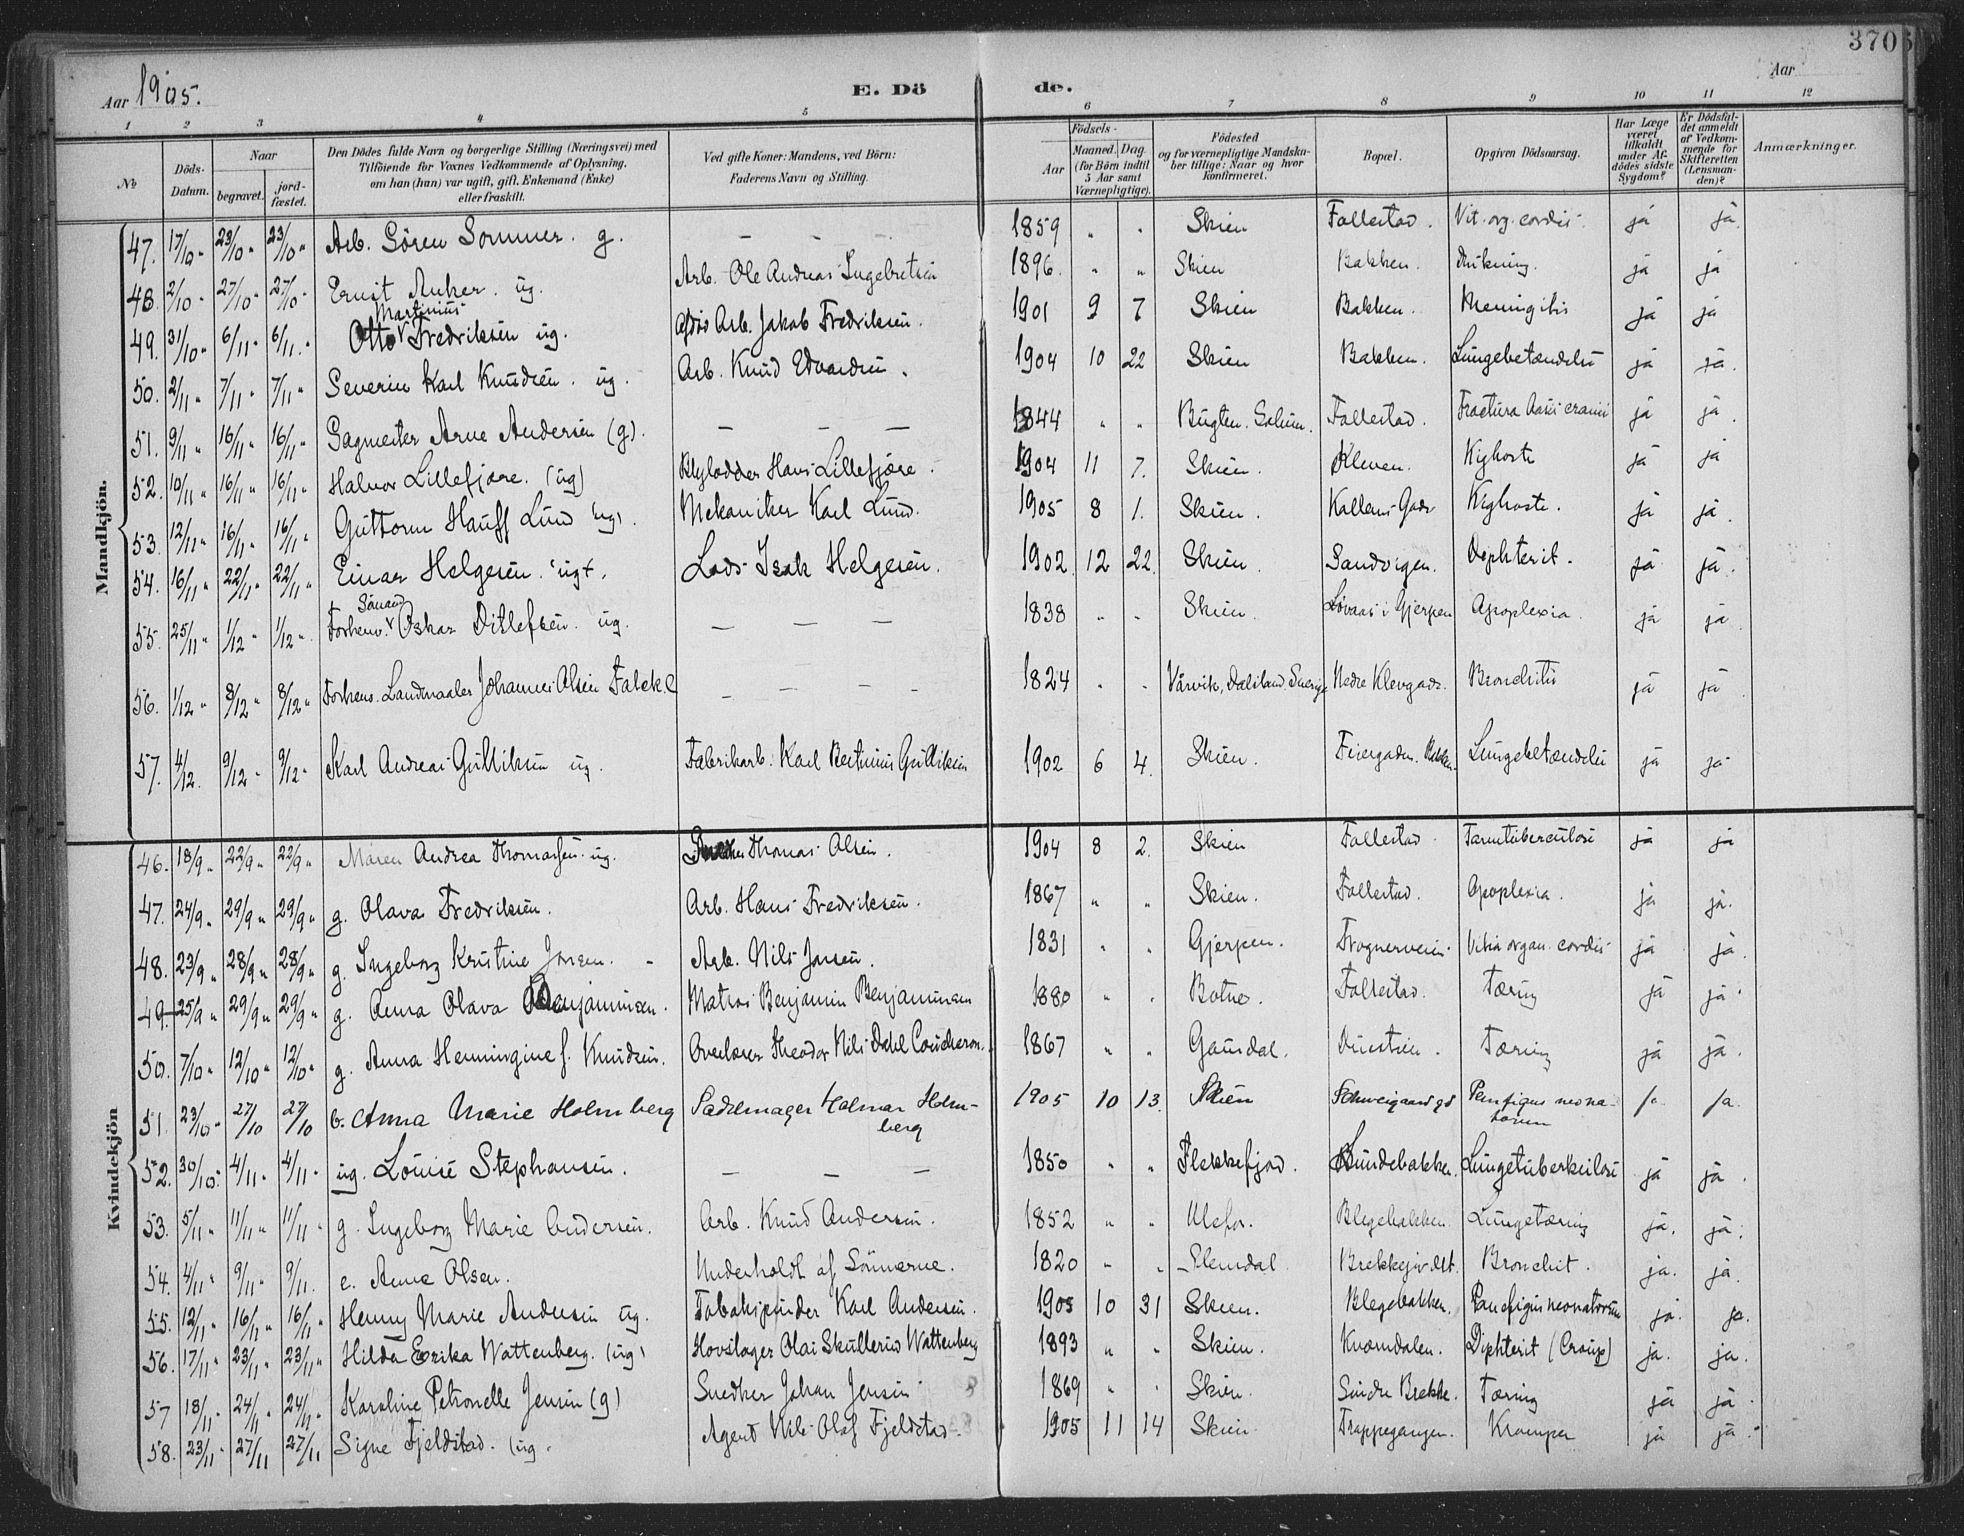 3705
Aar 1905.
E. Döde.
Aar
1 2 3 4 5 6 7 8 9 10 11 12
№ | Döds-Datum. | Naar begravet. | jordfæstet. | Den Dödes fulde Navn og borgerlige Stilling (Næringsvei) med Tilföiende for Voxnes Vedkommende af Oplysning, om han (hun) var ugift, gift, Enkemand (Enke) eller fraskilt. | Ved gifte Koner: Mandens, ved Börn: Faderens Navn og Stilling. | Födsels- Aar | Maaned. Dag. (for Börn indtil 5 Aar samt Værnepligtige). | Födested og for værnepligtige Mandskaber tillige: Naar og hvor konfirmeret. | Bopæl. | Opgiven Dödsaarsag. | Har Læge været tilkaldt under Afdödes sidste Sygdom? | Er Dödsfaldet anmeldt af Vedkommende for Skifteretten (Lensmanden)? | Anmærkninger.
Mandkjön.
47. 17/10 " 23/10 " 23/10 " Arb. Sören Sommer. g. – – – 1859 " " Skien Follestad. Vit. org. cordis. ja ja.
48 2/10 " 27/10 " 27/10 " Ernst Anker. ug. Arb. Ole Andreas Ingebretsen 1896. " " Skien Bakken. Drukning. ja ja
49. 31/10 " 6/11 " 6/11. " Otto Martinius Fredriksen ug. Arb. Jakob Fredriksen. 1901 9 7 Skien Bakken. Meningitis ja ja
50. 2/11 " 7/11 " 7/11 " Severin Karl Knudsen. ug. Arb. Knud Edvardsen. 1904 10 22 Skien Bakken. Lungebetændelse ja ja.
51. 9/11 " 16/11 " 16/11 " Sagmester Arne Andersen (g). – – – 1844 " " Bugten. Solum. Follestad. Fractura basis cranii ja ja.
52. 10/11 " 16/11 " 16/11 " Halvor Lillefjære. (ug) Hans Lillefjære. 1904 11 7. Skien. Kleven. Kighoste ja ja
53. 12/11 " 16/11 " 16/11 " Guttorm Hauff Lund (ug). Mekaniker Karl Lund. 1905 8 1. Skien. Kighoste. ja ja.
54. 16/11 " 22/11 " 22/11 " Einar Helgesen. ugt. Lods Isak Helgesen. 1902. 12 22. Skien. Sandvigen. Diphterit. ja ja.
55. 25/11 " 1/12 " 1/12 " Forhenv. Sömand Oskar Ditlefsen. ug. – – – 1838 " " Skien. Lövaas i Gjerpen Apoplexia. ja ja.
56. 1/12 " 8/12 " 8/12 " Forhenv. Landmaaler Johannes Olsen Falck e – – – – 1824 " " Vårvik, Dalsland, Sverige Nedre Klevgade. Bronchitis ja ja.
57. 4/12. 9/12 " 9/12 " Karl Andreas Gulliksen ug. Fabrikarb. Karl Bertinius Gulliksen 1902 6 4. Skien. Feiergaden. Bakken. Lungebetændelse ja ja
Kvindekjön
46. 18/9 " 22/9 " 22/9 " Maren Andrea Thomassen ug. Thomas Olsen. 1904 8 2. Skien Follestad. Tarmtuberculose ja ja
47. 24/9 " 29/9 " 29/9 " g. Olava Fredriksen. Arb. Hans Fredriksen. 1867 " " Skien. Follestad. Apoplexia. ja ja.
48. 23/9 " 28/9 " 28/9 " g. Ingeborg Kristine Jonsen. – Arb. Nils Jonsen. 1831 " " Gjerpen. Frognerveien Vitia organ. cordis ja ja.
49. 25/9 " 29/9 " 29/9 " g. Anna Olava Benjaminsen. Matros Benjamin Benjaminsen 1880 " " Botne. Follestad. Tæring ja ja
50. 7/10 " 12/10 " 12/10 " g. Anna Henningine f. Knudsen. Overlærer Theodor Nils Dahl Coucheron. 1867 " " Gausdal. Duestien. Tæring ja ja.
51. 23/10 " 27/10 27/10 b. Anna Marie Holmberg Sadelmager Halmar Holmberg 1905 10 13. Skien Schweigaardsgd Pemfigus neonatorum ja ja.
52. 30/10 " 4/11 " 4/11 " ug. Louise Stephansen. – – – 1850 " " Flekkefjord. Bundebakken. Lungetuberkulose ja ja.
53. 5/11 " 11/11 " 11/11 " g. Ingeborg Marie Andersen. Arb. Knud Andersen. 1852 " " Ulefos. Blegebakken. Lungetæring ja. ja.
54. 4/11 " 9/11 " 9/11. e. Anne Olsen. Underholdt af Sönnerne. 1820 " " Slemdal. Bronchit. ja. ja.
55. 12/11 " 16/11 " 16/11 " Henny Marie Andersen ug. Tobakspinder Karl Andersen. 1905 10 31 Skien. Blegebakken. Pemfigus neonatorum ja. ja.
56. 17/11 " 23/11 " 23/11 " Hilda Erika Wattenberg. (ug) Hovslager Olai Skullerud Wattenberg 1893 " " Skien. Kvomdalen. Diphterit (Croup) ja. ja.
57 18/11 " 24/11 " 24/11 " Karoline Petronelle Jensen (g) Snedker Johan Jensen 1869 " " Skien. Söndre Brekke. Tæring ja ja.
58. 23/11 " 27/11 27/11 Signe Fjeldstad. (ug. Agent Nils Olaf Fjeldstad. 1905 11 14 Skien. Trappegangen. Kramper ja ja.